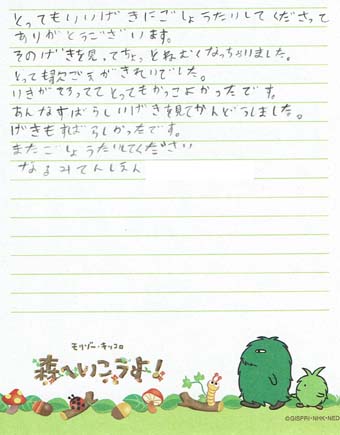 とってもいいげきにごしょうたいしてくださって
ありがとうございます。
そのげきを見ってちょっとねむくなっちゃいました。
とっても歌ごえがきれいでした。
いきがそろってて とってもかっこよかったです。
あんなすばらしいげきを見てかんどうしました。
げきもすばらしかったです。
またごしょうたいしてください
なるみてんしえん
モリゾー・キッコロ
森へいこうよ!
©GISPRI・NHK・NED